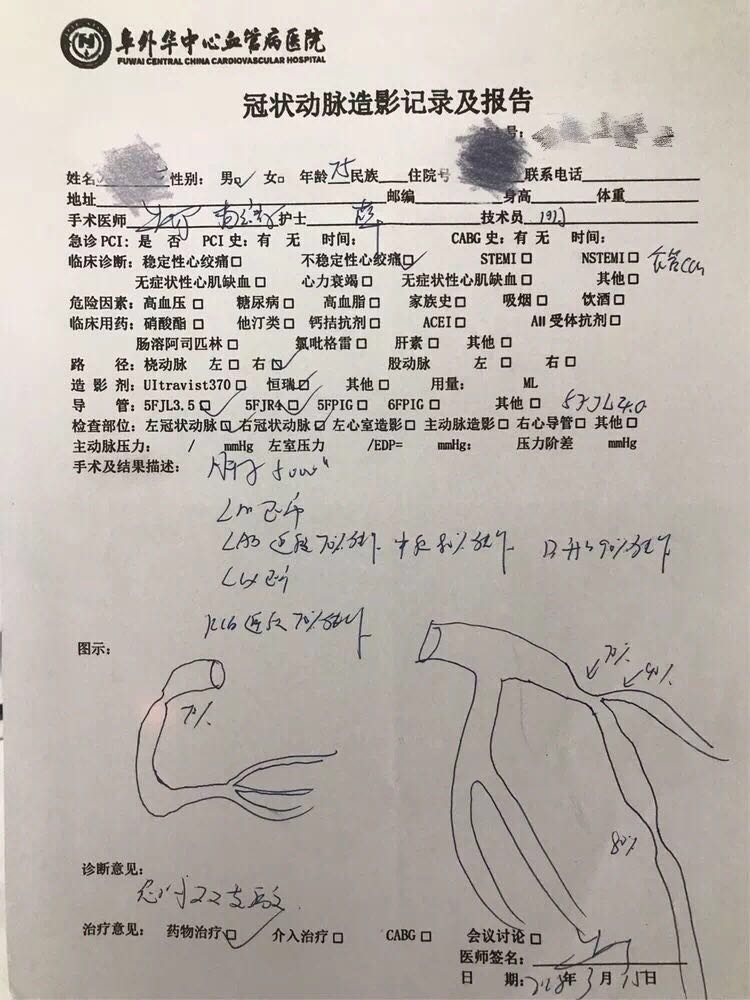 阜外华中心血管病医院
FUWAI CENTRAL CHINA CARDIOVASCULAR HOSPITAL
冠状动脉造影记录及报告
号:
姓名 性别: 男□✓ 女□ 年龄75民族 住院号 联系电话
地址 邮编 身高 体重
手术医师 护士 技术员
急诊PCI: 是 否 PCI史: 有 无 时间: CABG史: 有 无 时间:
临床诊断: 稳定性心绞痛□ 不稳定性心绞痛□✓ STEMI□ NSTEMI□
无症状性心肌缺血□ 心力衰竭□ 无症状性心肌缺血□ 其他□
危险因素: 高血压□ 糖尿病□ 高血脂□ 家族史□ 吸烟□ 饮酒□
临床用药: 硝酸酯□ 他汀类□ 钙拮抗剂□ ACEI□ AII受体抗剂□
肠溶阿司匹林□ 氯吡格雷□ 肝素□ 其他□
路 径: 桡动脉 左□ 右□✓ 股动脉 左□ 右□
造影剂: UItravist370□ 恒瑞□✓ 其他□ 用量: ML
导 管: 5FJL3.5□✓ 5FJR4□✓ 5FPIG□ 6FPIG□ 其他□ 5FJL4.0
检查部位: 左冠状动脉□✓ 右冠状动脉□✓ 左心室造影□ 主动脉造影□ 右心导管□ 其他□
主动脉压力: / mmHg 左室压力 /EDP= mmHg: 压力阶差 mmHg
手术及结果描述:
LM
LAD 近段70%狭窄 中段80%狭窄 90%狭窄
LCX
RCA 近段70%狭窄
图示:
70%
70%
90%
80%
诊断意见:
冠心病 双支病变
治疗意见: 药物治疗□✓ 介入治疗□ CABG□ 会议讨论□
医师签名:
日 期: 2018年3月15日